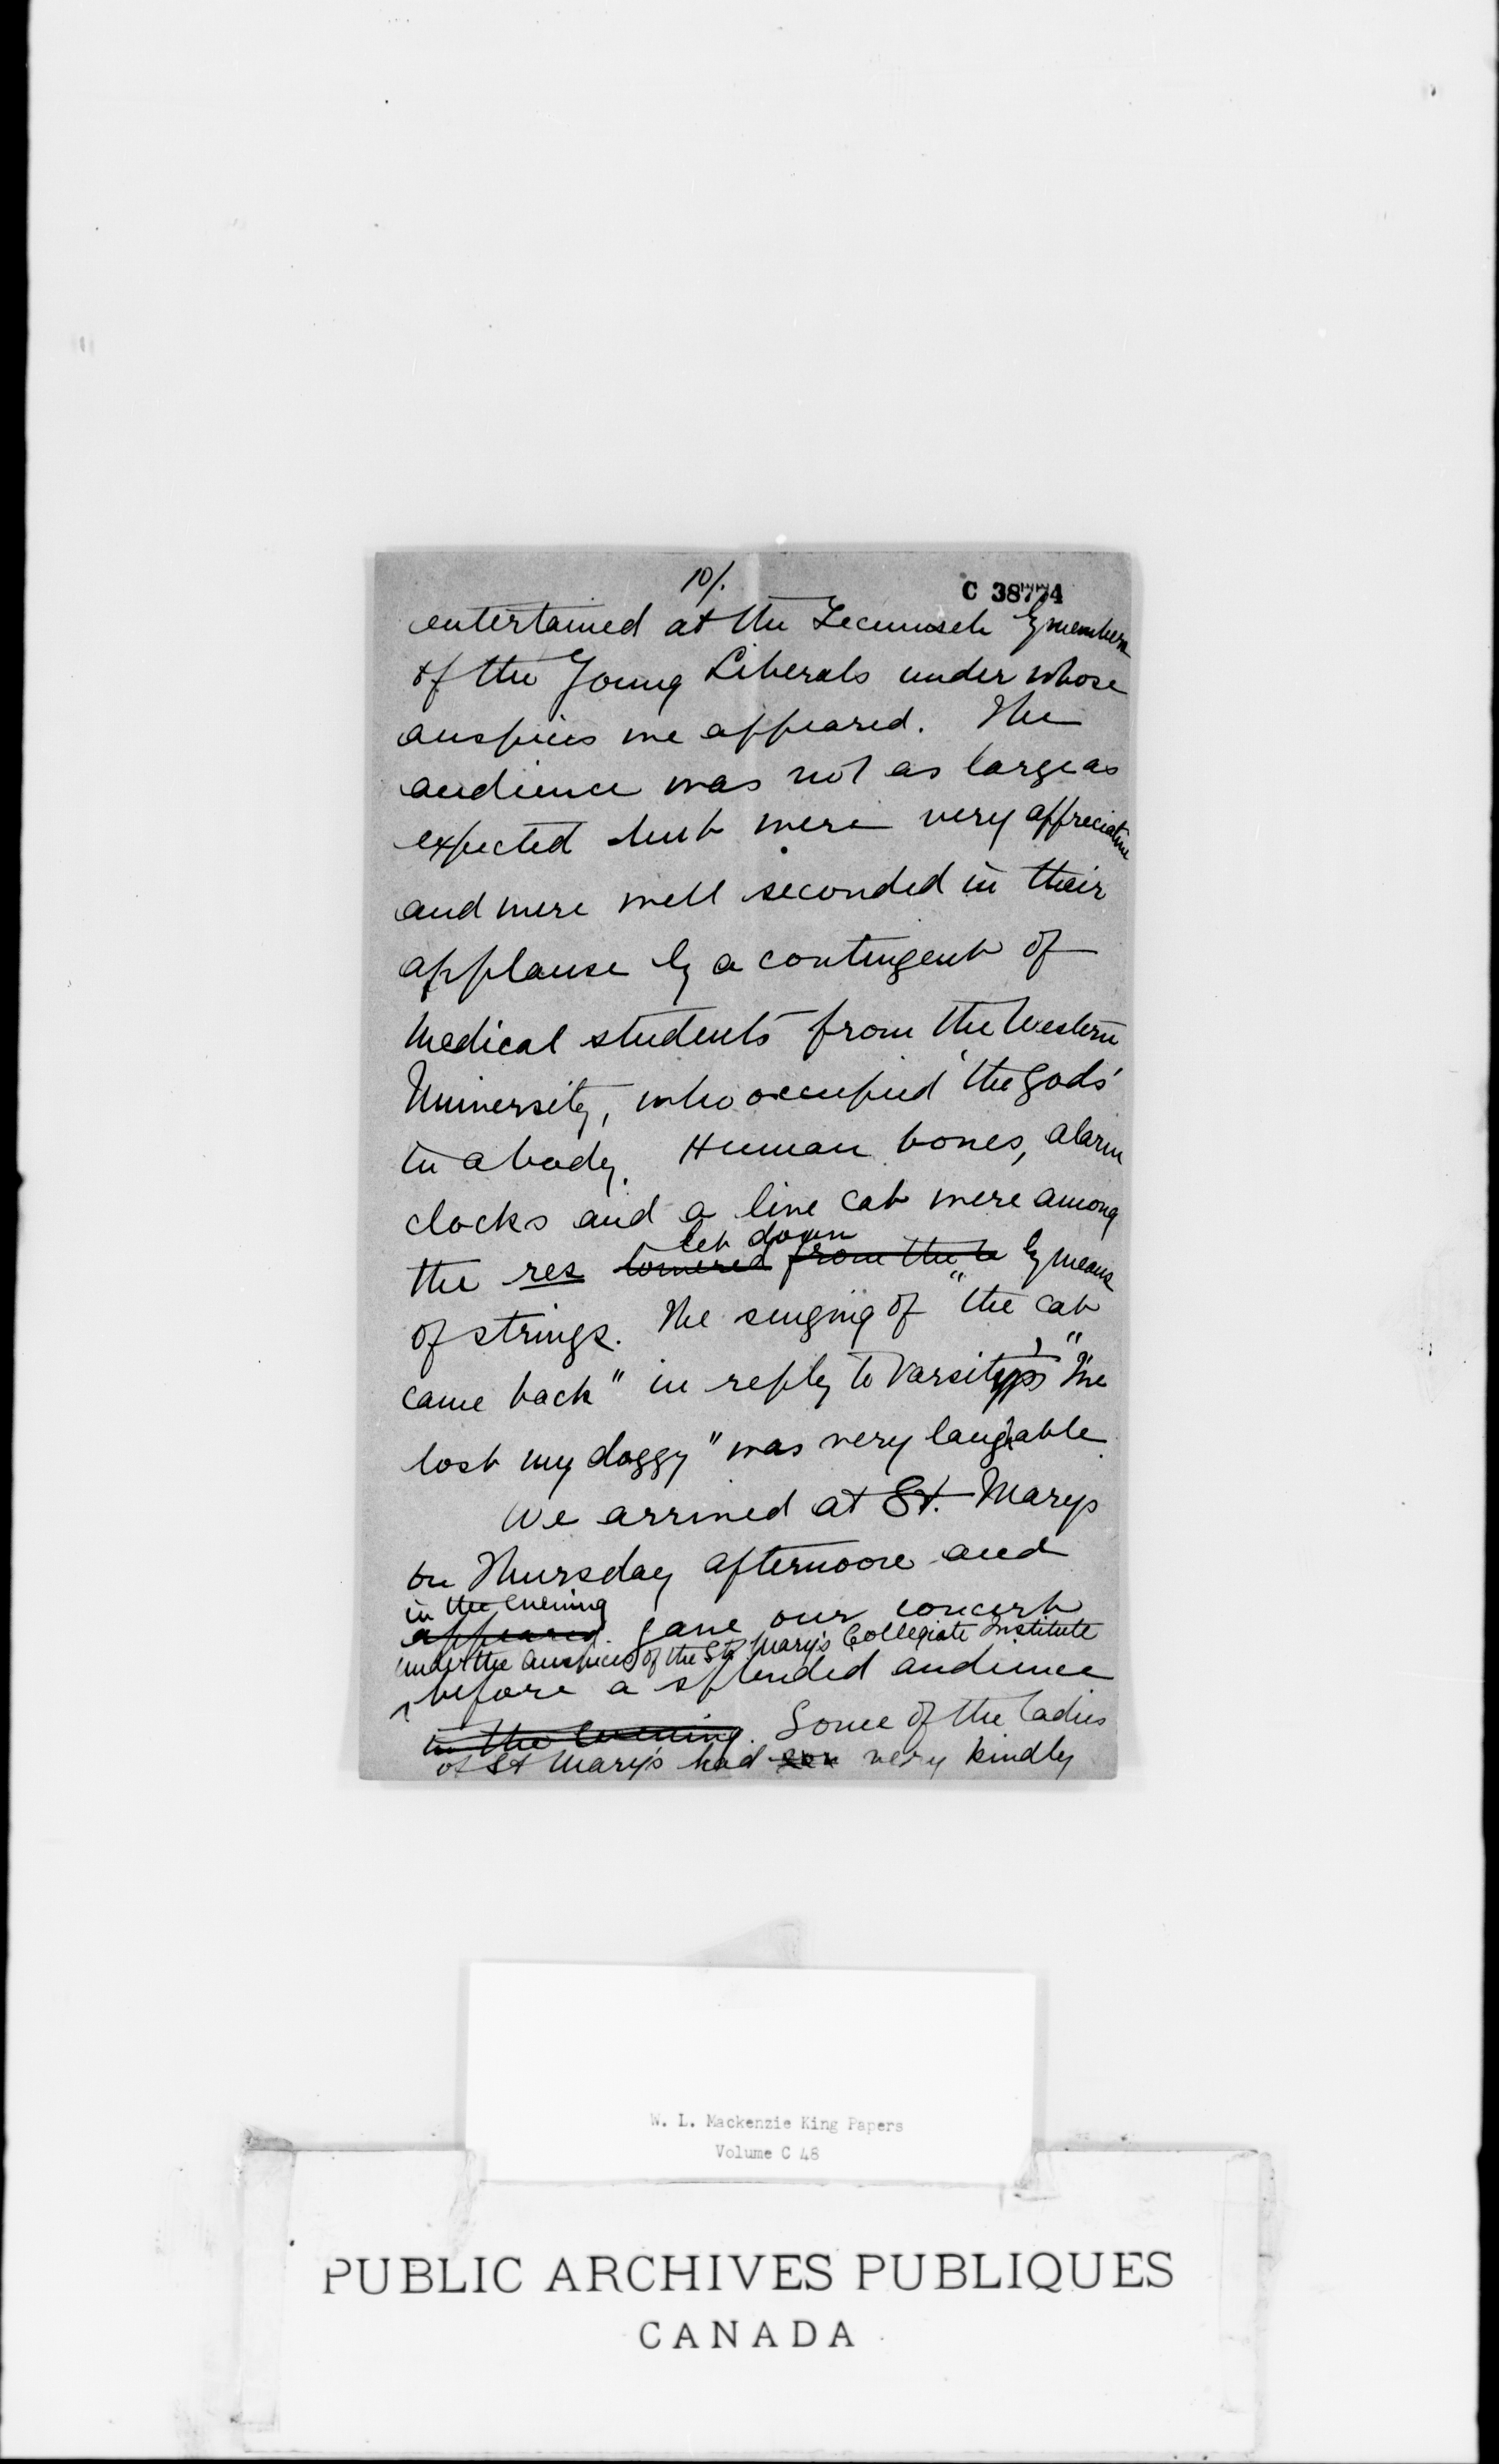 10/.
C 38774
entertained at the Tecumseh by members
of the Young Liberals under whose
auspices we appeared. The
audience was not as large as
expected but were very appreciative
and were well seconded in their
applause by a contingent of
Medical students from the Western
University, who occupied 'the gods'
in a body. Human bones, alarm
clocks and a live cat were among
let down
the res lowered from the by means
of strings. The singing of "the cat
came back" in reply to Varsity's "I've
lost my doggy" was very laughable
We arrived at St. Marys
on Thursday afternoon and
in the evening
appeared. gave our concert
under the auspices of the St. Mary's Collegiate Institute
before a splended audience
in the evening. Some of the ladies
of St Mary's had very kindly
W. L. Mackenzie King Papers
Volume C 48
PUBLIC ARCHIVES PUBLIQUES
CANADA